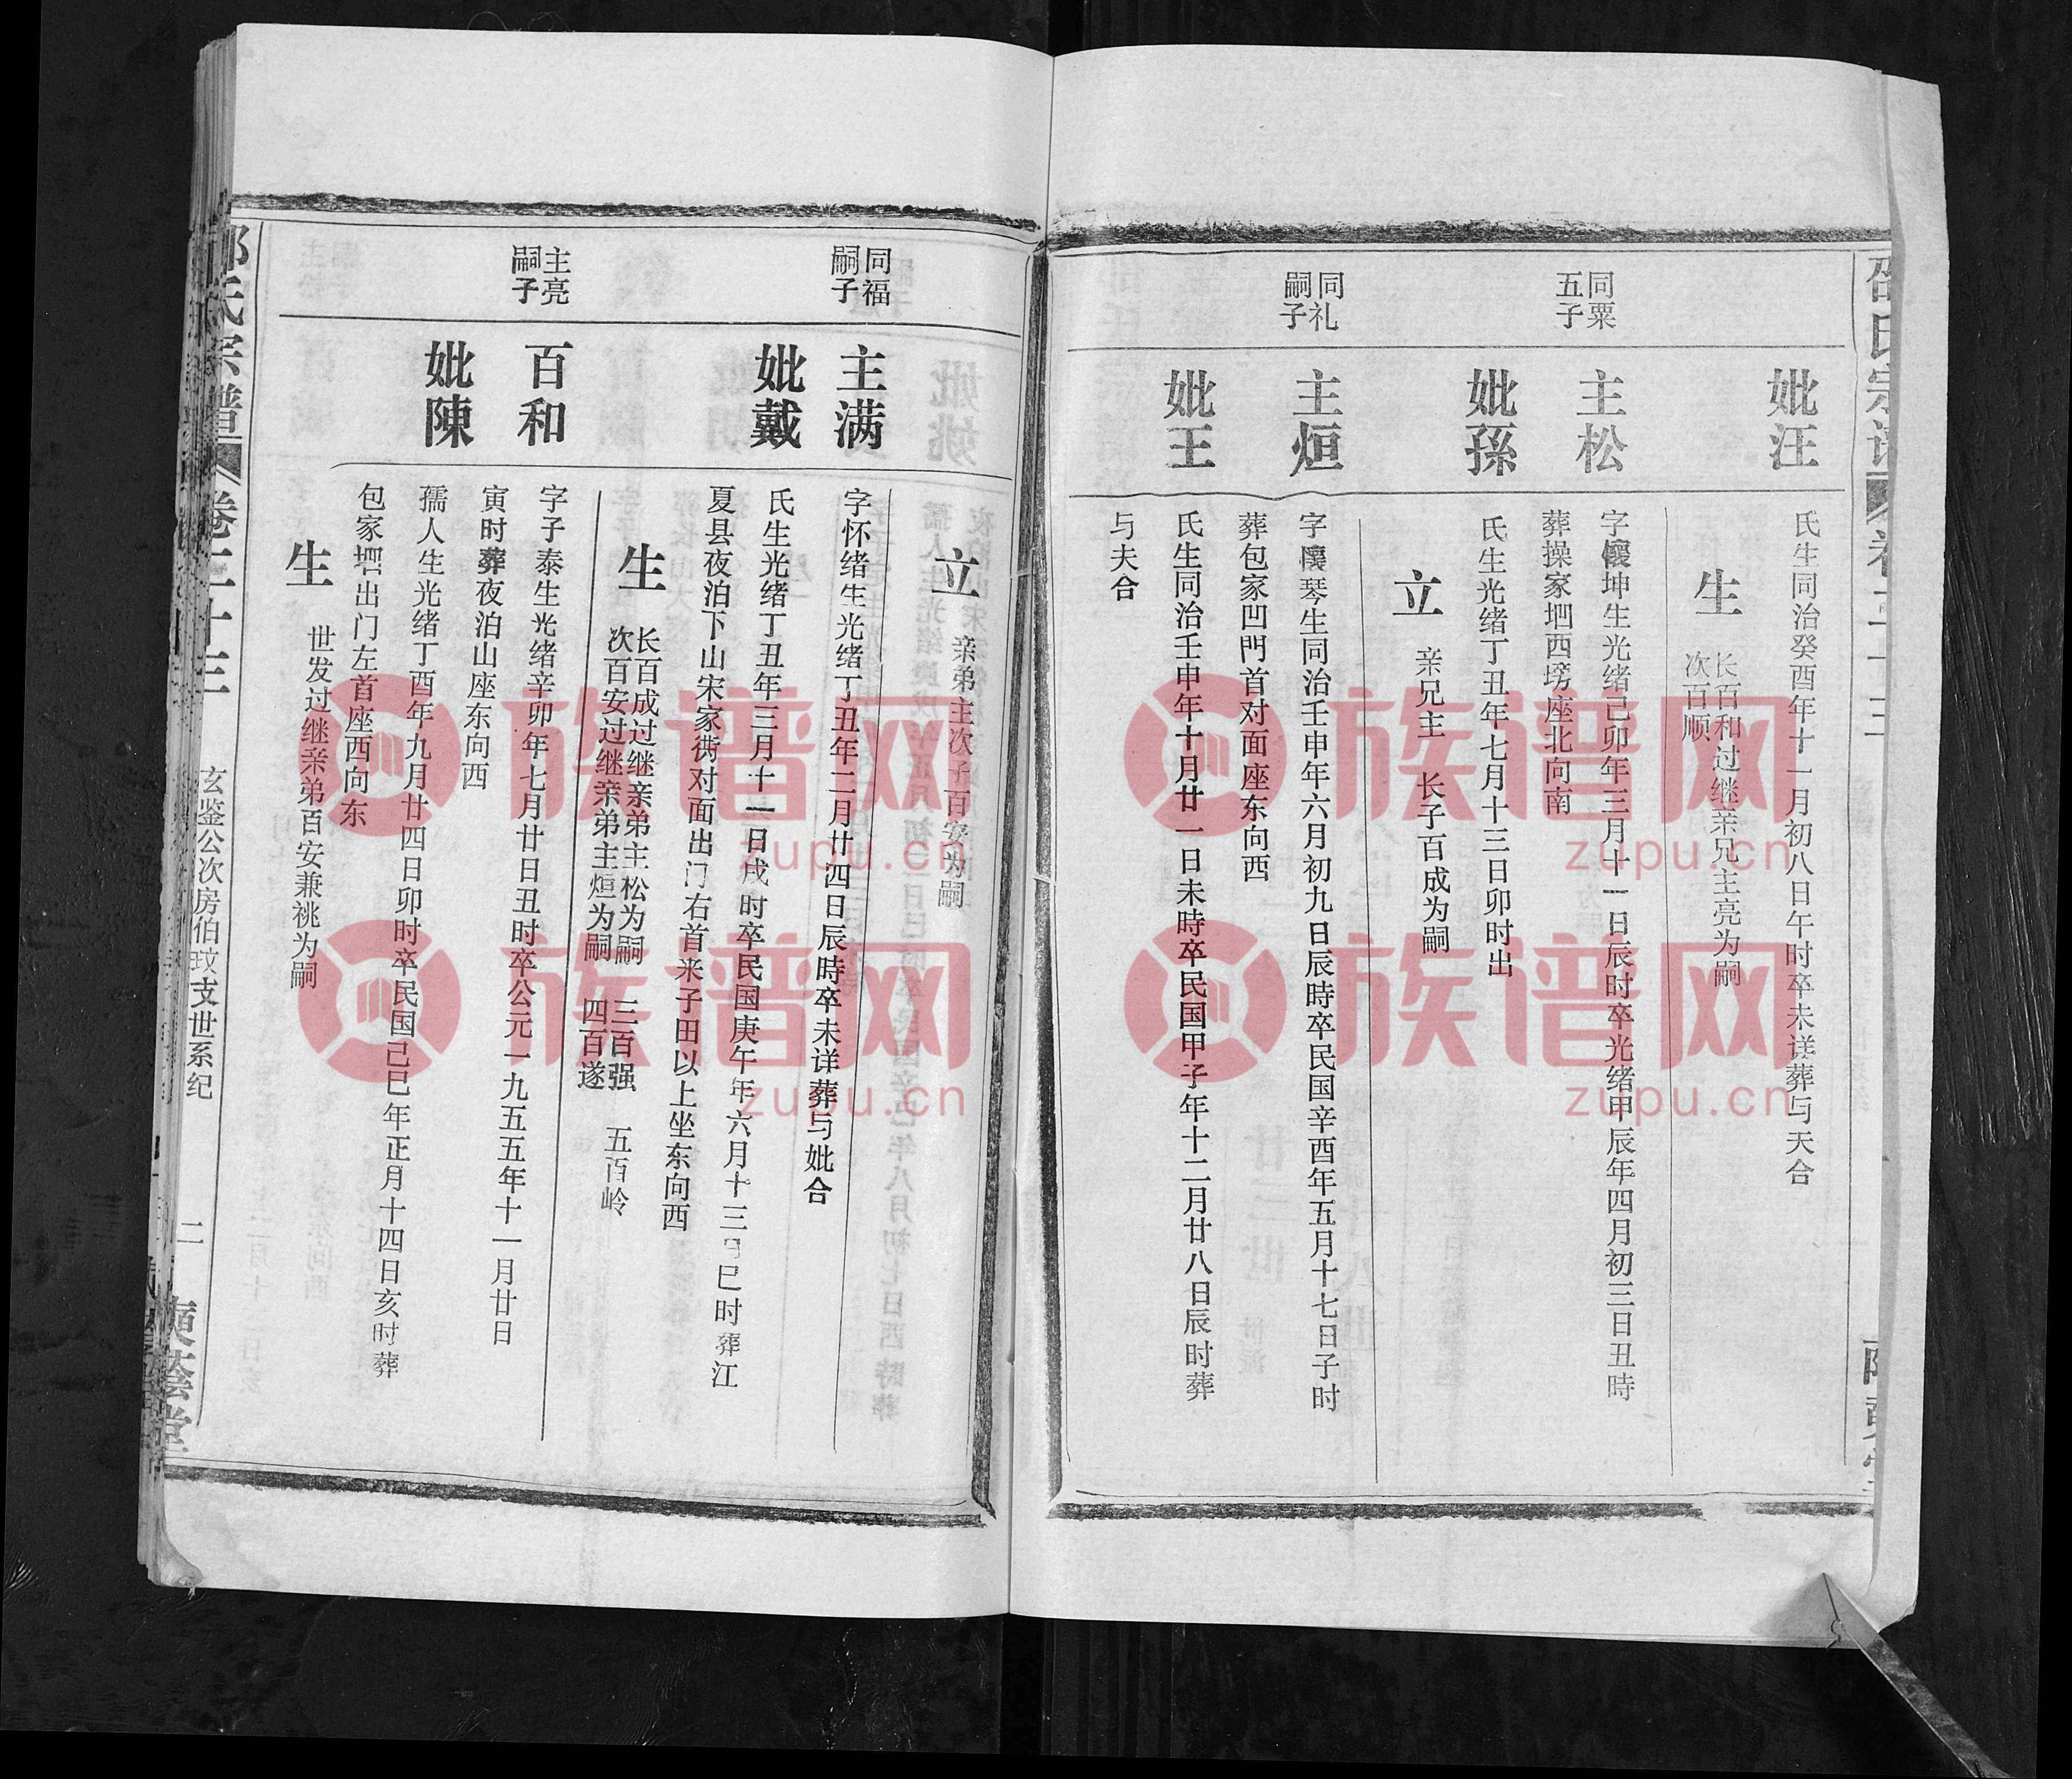 妣汪
氏生同治癸酉年十一月初八日午时卒未详葬与天合
生
长百和过继亲兄主亮为嗣
次百顺
同粟
五子
主松
字懷坤生光绪己卯年三月十一日辰时卒光绪甲辰年四月初三日丑時
葬操家垇西塝座北向南
妣孫
氏生光绪丁丑年七月十三日卯时出
立
亲兄主 长子百成为嗣
同礼
嗣子
主烜
字懷琴生同治壬申年六月初九日辰時卒民国辛酉年五月十七日子时
葬包家凹門首对面座东向西
妣王
氏生同治壬申年十月廿一日未時卒民国甲子年十二月廿八日辰时葬
与夫合
立
亲弟主次子百安为嗣
同福
嗣子
主满
字怀绪生光绪丁丑年二月廿四日辰時卒未详葬与妣合
妣戴
氏生光绪丁丑年三月十一日戌时卒民国庚午年六月十三日巳时葬江
夏县夜泊下山宋家塆对面出门右首来子田以上坐东向西
生
长百成过继亲弟主松为嗣 三百强 五百岭
次百安过继亲弟主烜为嗣 四百遂
主亮
嗣子
百和
字子泰生光绪辛卯年七月廿日丑时卒公元一九五五年十一月廿日
寅时葬夜泊山座东向西
妣陳
孺人生光绪丁酉年九月廿四日卯时卒民国己巳年正月十四日亥时葬
包家垇出门左首座西向东
生
世发过继亲弟百安兼祧为嗣
氏宗譜
卷三十三
玄鉴公次房伯玟支世系纪
二
族谱网
zupu.cn
族谱网
zupu.cn
族谱网
zupu.cn
族谱网
zupu.cn